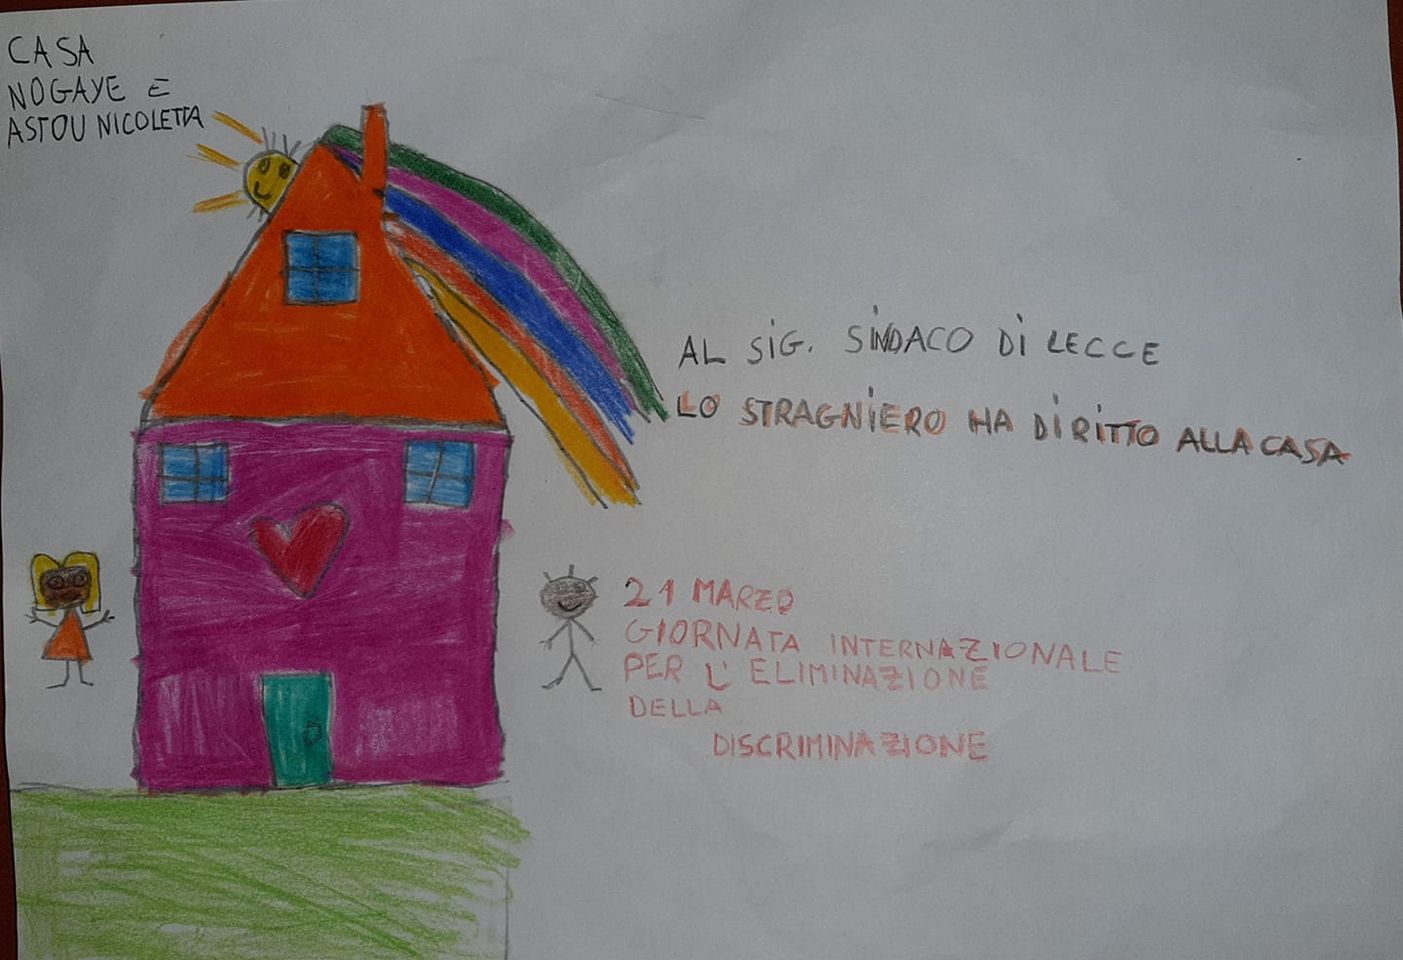 CASA
NOGAYE E
ASTOU NICOLETTA
AL SIG. SINDACO DI LECCE
LO STRAGNIERO HA DIRITTO ALLA CASA
21 MARZO
GIORNATA INTERNAZIONALE
PER L'ELIMINAZIONE
DELLA
DISCRIMINAZIONE